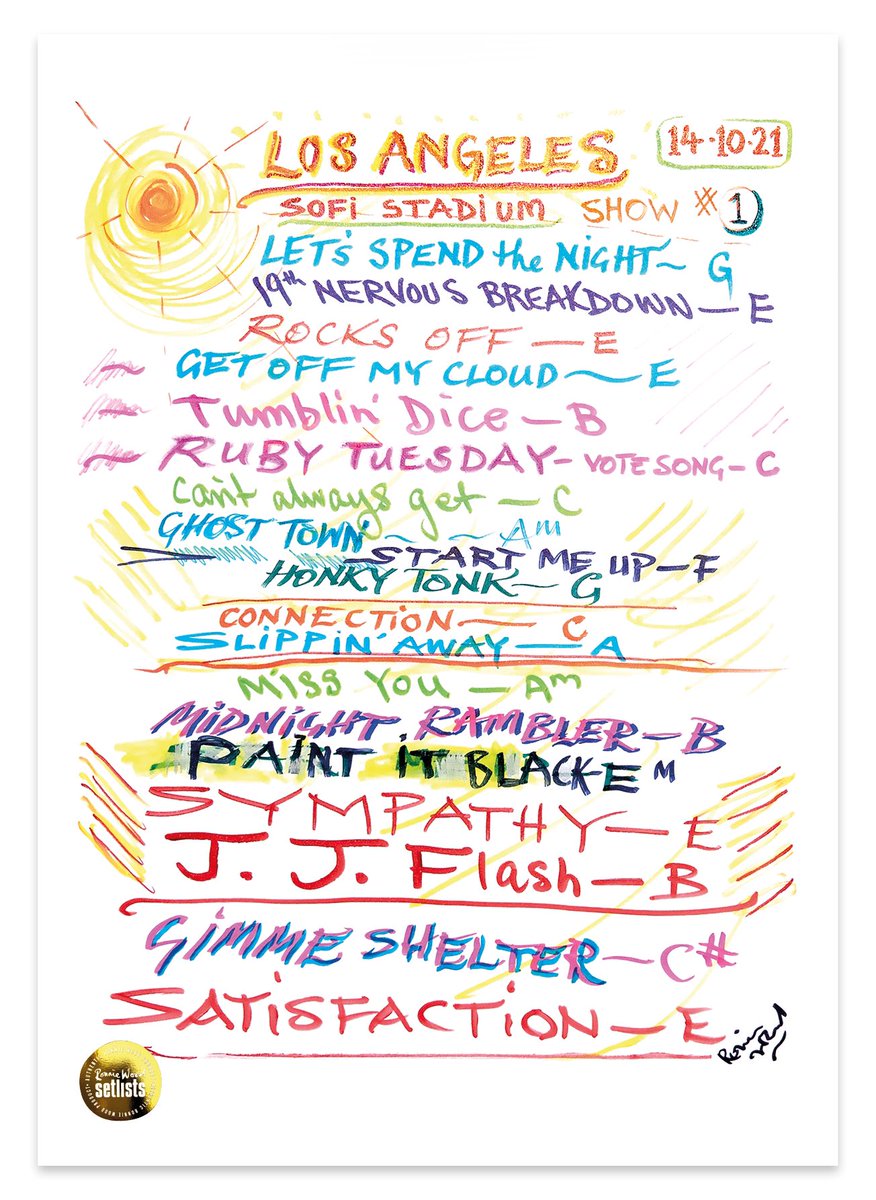 LOS ANGELES 14·10·21
SOFi STADiUM SHOW # 1
LET'S SPEND the NiGHT~ G
19th NERVOUS BREAKDOWN — E
ROCKS OFF — E
GET OFF MY CLOUD ~ E
Tumblin' Dice — B
RUBY TUESDAY - VOTE SONG - C
Can't always get — C
GHOST TOWN ~ ~ Am
START ME UP — F
HONKY TONK — G
CONNECTiON — C
SLiPPiN' AWAY — A
MiSS YOU — Am
MiDNiGHT RAMBLER — B
PAINT iT BLACK - EM
SYMPATHY — E
J. J. Flash — B
GiMME SHELTER — C#
SATiSFACTiON — E
Ronnie Wood
setlists